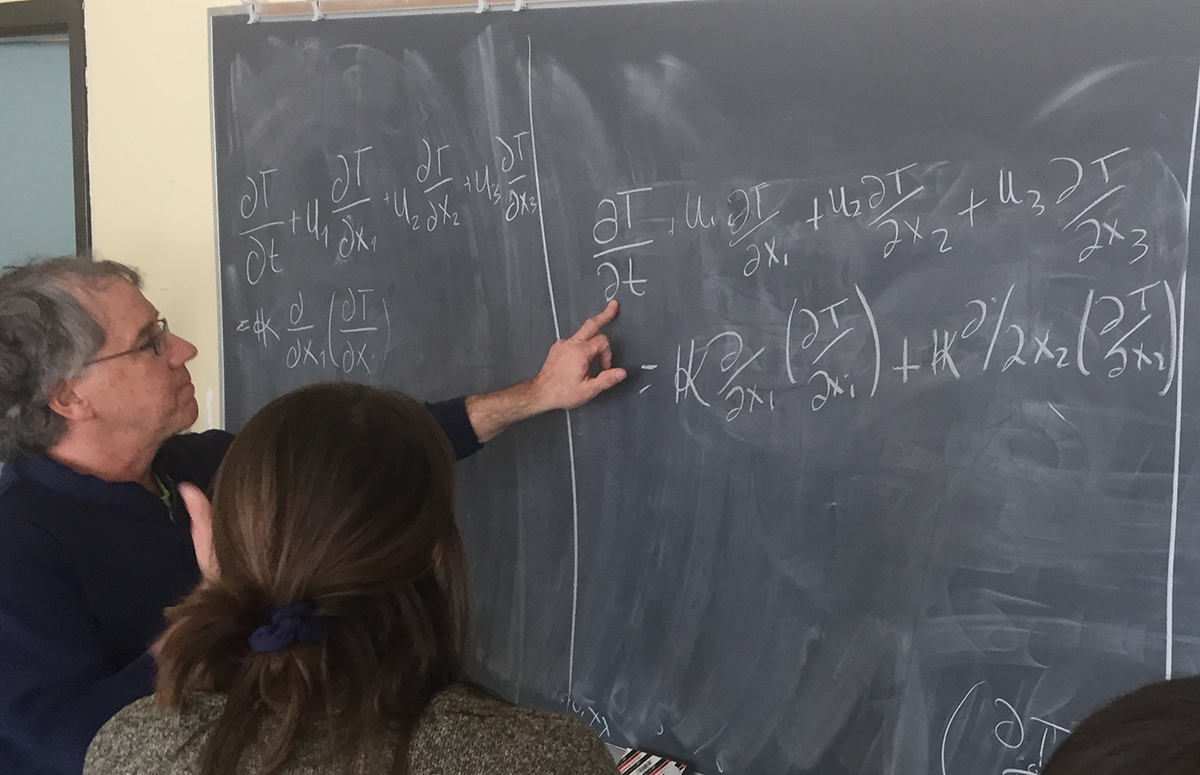 ∂T/∂t + u₁ ∂T/∂x₁ + u₂ ∂T/∂x₂ + u₃ ∂T/∂x₃
= K ∂/∂x₁ (∂T/∂x₁)
∂T/∂t + u₁ ∂T/∂x₁ + u₂ ∂T/∂x₂ + u₃ ∂T/∂x₃
= K ∂/∂x₁ (∂T/∂x₁) + K ∂/∂x₂ (∂T/∂x₂)
( ∂T